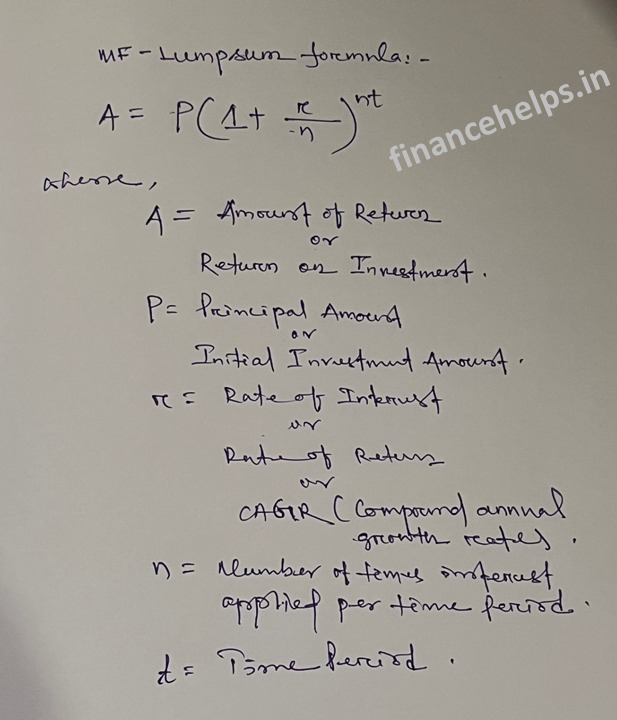 MF - Lumpsum formula: -
A = P(1 + r/n)^nt
financehelps.in
where,
A = Amount of Return
or
Return on Investment.
P = Principal Amount
or
Initial Investment Amount.
r = Rate of Interest
or
Rate of Return
or
CAGR (Compound annual
growth rates).
n = Number of times interest
applied per time period.
t = Time Period.